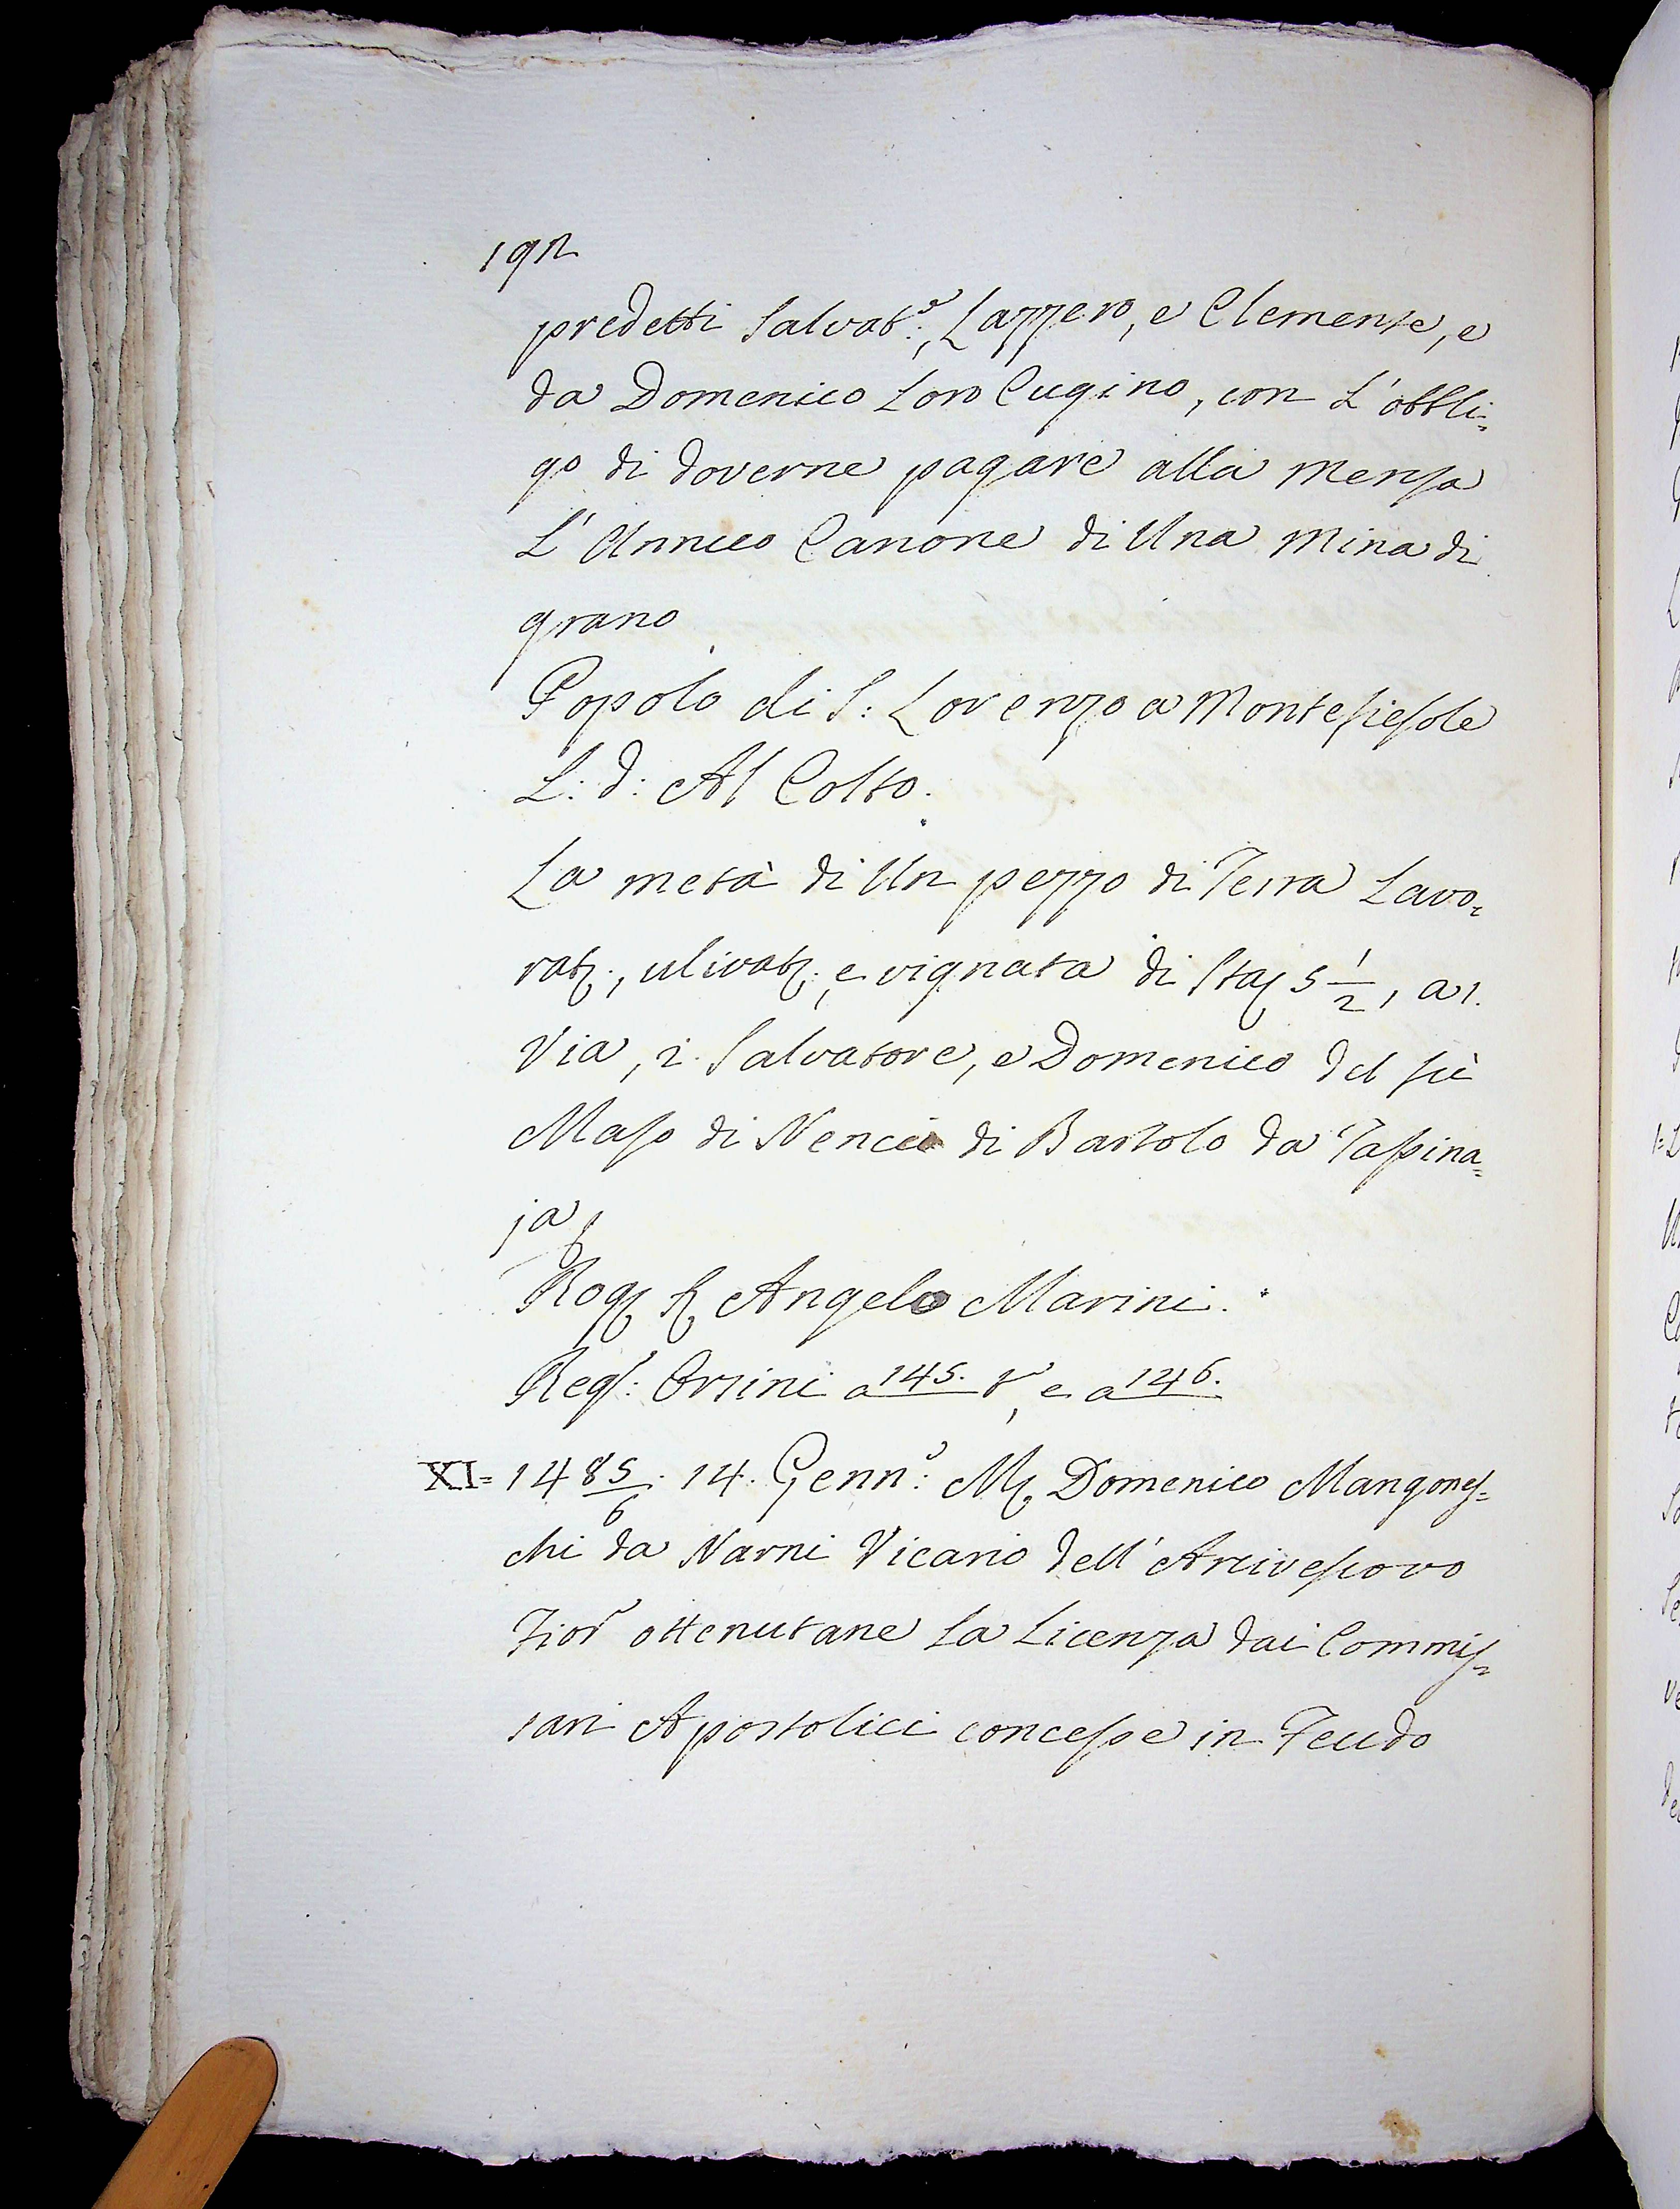 192
predetti Salvat.e, Lazzero, e Clemente, e
da Domenico Loro Cugino, con L'obbli=
go di doverne pagare alla Mensa
L'Annuo Canone di Una Mina di
grano
Popolo di S: Lorenzo a Montefiesole
L: d: Al Colto.
La metà di Un pezzo di Terra Lavo=
rat:, ulivat:, e vignata di Sta: 5 1/2, a 1.
Via, 2. Salvatore, e Domenico del fù
Maso di Nencio di Bartolo da Tassina=
ja
Rog: S: Angelo Marini.
Regs: Orsini a 145. t, e a 146.
XI= 1485/6. 14. Genn.o: M: Domenico Mangones=
chi da Narni Vicario dell'Arcivescovo
Fior.o ottenutane La Licenza dai Commis=
sari Apostolici concesse in Feudo